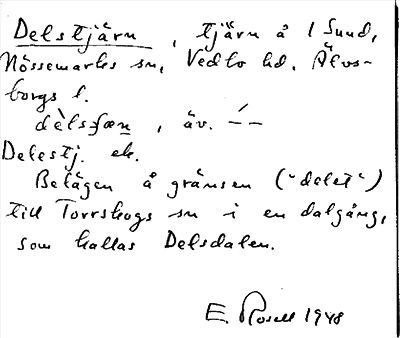 Delstjärn, tjärn å 1 Sund,
Nössemarks sn, Vedbo hd. Älvs-
borgs l.
av. ´ – –
Delestj. ek.
Belägen å gränsen ("delet")
till Torrskogs sn i en dalgång,
som kallas Delsdalen.
E. Rosell 1948